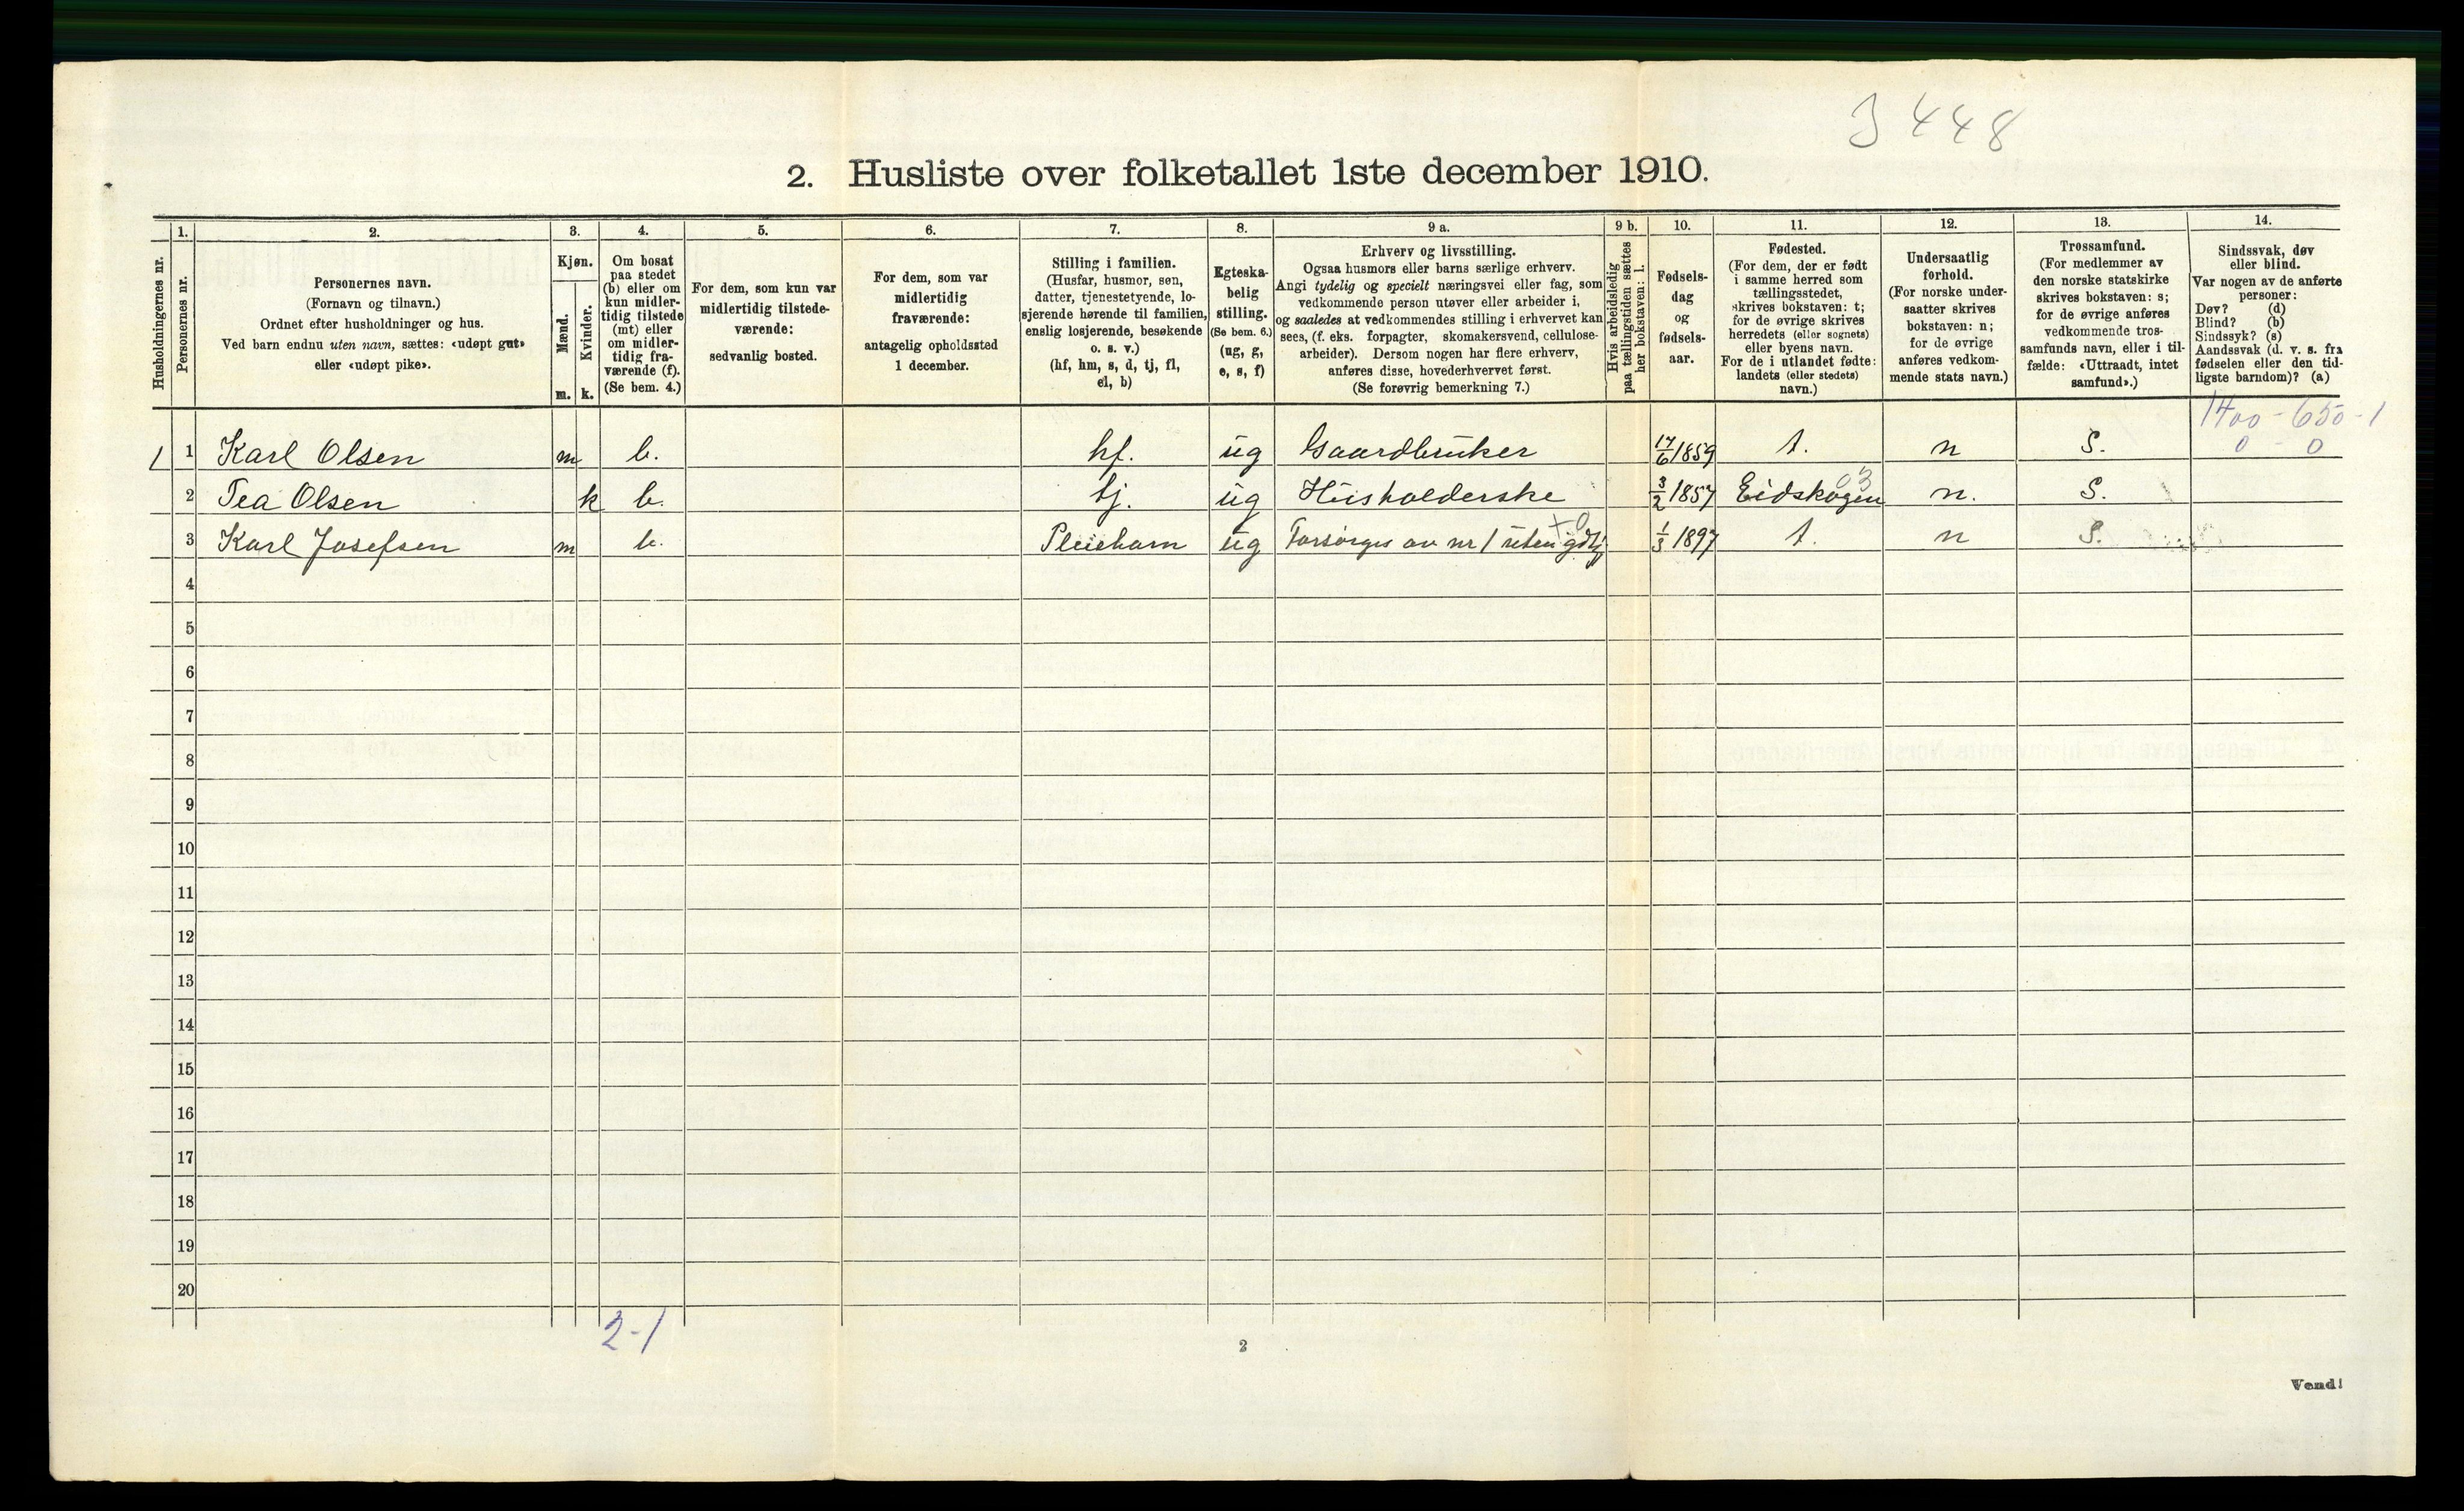 3 448
2. Husliste over folketallet 1ste december 1910.
Husholdningernes nr.
1.
Personernes nr.
2.
Personernes navn.
(Fornavn og tilnavn.)
Ordnet efter husholdninger og hus.
Ved barn endnu uten navn, sættes: «udøpt gut»
eller «udøpt pike».
3.
Kjøn.
Mænd.
Kvinder.
m. k.
4.
Om bosat
paa stedet
(b) eller om
kun midler-
tidig tilstede
(mt) eller
om midler-
tidig fra-
værende (f).
(Se bem. 4.)
5.
For dem, som kun var
midlertidig tilstede-
værende:
sedvanlig bosted.
6.
For dem, som var
midlertidig
fraværende:
antagelig opholdssted
1 december.
7.
Stilling i familien.
(Husfar, husmor, søn,
datter, tjenestetyende, lo-
sjerende hørende til familien,
enslig losjerende, besøkende
o. s. v.)
(hf, hm, s, d, tj, fl,
el, b)
8.
Egteska-
belig
stilling.
(Se bem. 6.)
(ug, g,
e, s, f)
9 a.
Erhverv og livsstilling.
Ogsaa husmors eller barns særlige erhverv.
Angi tydelig og specielt næringsvei eller fag, som
vedkommende person utøver eller arbeider i,
og saaledes at vedkommendes stilling i erhvervet kan
sees, (f. eks. forpagter, skomakersvend, cellulose-
arbeider). Dersom nogen har flere erhverv,
anføres disse, hovederhvervet først.
(Se forøvrig bemerkning 7.)
9 b.
Hvis arbeidsledig
paa tællingstiden sættes
her bokstaven: l.
10.
Fødsels-
dag
og
fødsels-
aar.
11.
Fødested.
(For dem, der er født
i samme herred som
tællingsstedet,
skrives bokstaven: t;
for de øvrige skrives
herredets (eller sognets)
eller byens navn.
For de i utlandet fødte:
landets (eller stedets)
navn.)
12.
Undersaatlig
forhold.
(For norske under-
saatter skrives
bokstaven: n;
for de øvrige
anføres vedkom-
mende stats navn.)
13.
Trossamfund.
(For medlemmer av
den norske statskirke
skrives bokstaven: s;
for de øvrige anføres
vedkommende tros-
samfunds navn, eller i til-
fælde: «Uttraadt, intet
samfund».)
14.
Sindssvak, døv
eller blind.
Var nogen av de anførte
personer:
Døv? (d)
Blind? (b)
Sindssyk? (s)
Aandssvak (d. v. s. fra
fødselen eller den tid-
ligste barndom)? (a)
1400 - 650 - 1
0 - 0
1 1 Karl Olsen m b. hf. ug Gaardbruker 17/6 1859 t. n S.
03
2 Tea Olsen k b. tj. ug Husholderske 3/2 1857 Eidskogen n. S.
+0
3 Karl Josefsen m b. Pleiebarn ug Forsørges av nr 1 uten gdtj 1/3 1897 t. n S.
4
5
6
7
8
9
10
11
12
13
14
15
16
17
18
19
20
2-1
2
Vend!